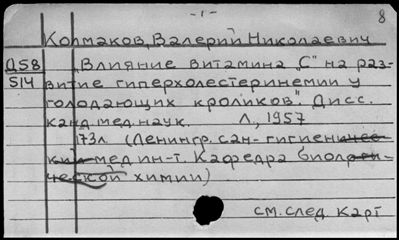 -1-
8
Колмаков, Валерий Николаевич
Д58
514
„Влияние витамина „С" на раз-
витие гиперхолестеринемии у
голодающих кроликов". Дисс.
канд. мед. наук. Л., 1957
173л. (Ленингр. сан-гигиеническ
кий мед ин-т. Кафедра биологи-
ческой химии)
см. след карт